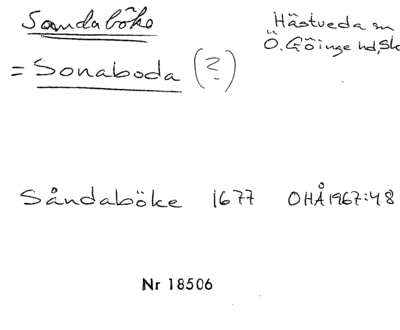 Såndaböke
Hästveda sn
= Sonaboda (?)
Ö. Göinge hd, Sk
Såndaböke 1677 OHÅ 1967:48
Nr 18506